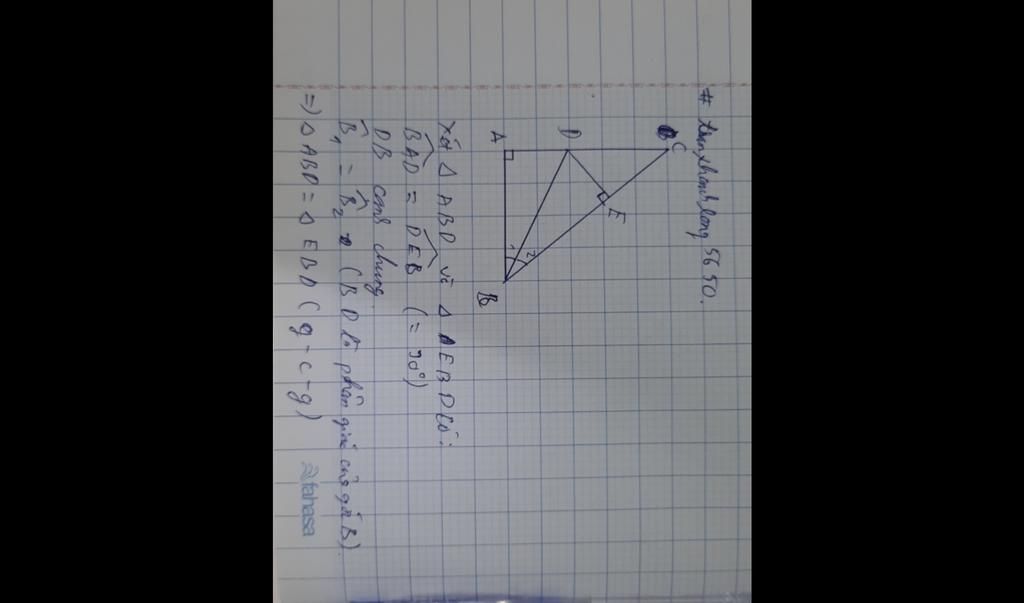 # tranthanhlong5650.
C
D
A
E
1
2
B
Xét Δ ABD và Δ EBD có:
BAD = DEB (= 90°)
DB cạnh chung.
B1 = B2 (BD là phân giác của góc B)
=) Δ ABD = Δ EBD (g-c-g)
fahasa